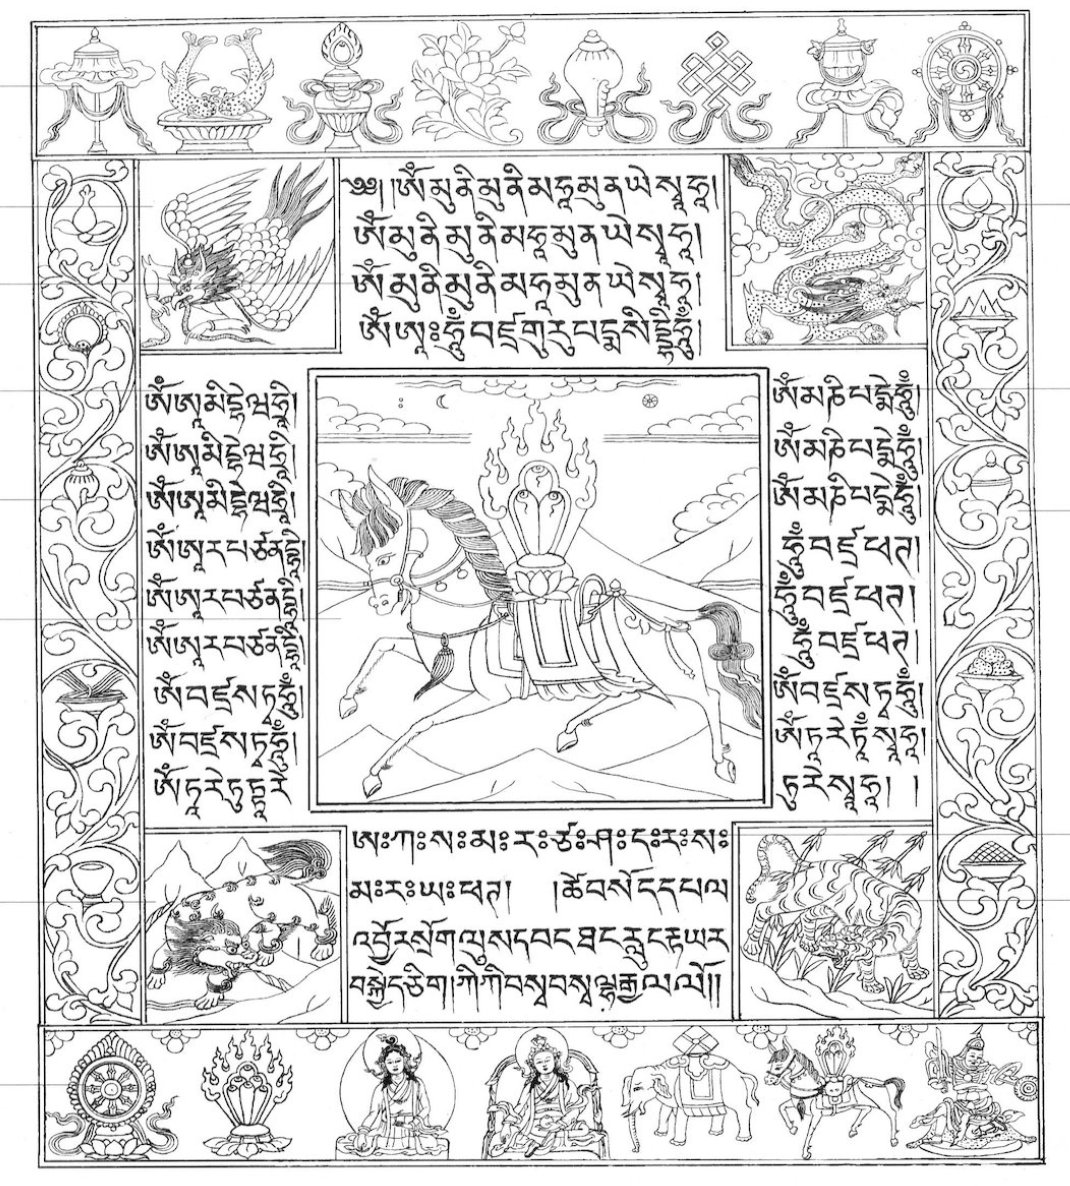 ༄༅། །ཨོཾ་མུ་ནི་མུ་ནི་མ་ཧཱ་མུ་ན་ཡེ་སྭཱ་ཧཱ།
ཨོཾ་མུ་ནི་མུ་ནི་མ་ཧཱ་མུ་ན་ཡེ་སྭཱ་ཧཱ།
ཨོཾ་མུ་ནི་མུ་ནི་མ་ཧཱ་མུ་ན་ཡེ་སྭཱ་ཧཱ།
ཨོཾ་ཨཱཿཧཱུྃ་བཛྲ་གུ་རུ་པདྨ་སིདྡྷི་ཧཱུྃ།
ཨོཾ་ཨཱ་མི་དྷེ་ཝ་ཧྲཱི།
ཨོཾ་ཨཱ་མི་དྷེ་ཝ་ཧྲཱི།
ཨོཾ་ཨཱ་མི་དྷེ་ཝ་ཧྲཱི།
ཨོཾ་ཨཱ་ར་པ་ཙ་ན་དྷཱི།
ཨོཾ་ཨཱ་ར་པ་ཙ་ན་དྷཱི།
ཨོཾ་ཨཱ་ར་པ་ཙ་ན་དྷཱི།
ཨོཾ་བཛྲ་ས་ཏྭ་ཧཱུྃ།
ཨོཾ་བཛྲ་ས་ཏྭ་ཧཱུྃ།
ཨོཾ་ཏཱ་རེ་ཏུ་ཏྟཱ་རེ
ཨོཾ་མ་ཎི་པདྨེ་ཧཱུྃ།
ཨོཾ་མ་ཎི་པདྨེ་ཧཱུྃ།
ཨོཾ་མ་ཎི་པདྨེ་ཧཱུྃ།
ཧཱུྃ་བཛྲ་ཕཊ།
ཧཱུྃ་བཛྲ་ཕཊ།
ཧཱུྃ་བཛྲ་ཕཊ།
ཨོཾ་བཛྲ་ས་ཏྭ་ཧཱུྃ།
ཨོཾ་ཏཱ་རེ་ཏཱཾ་སྭཱ་ཧཱ།
ཏུ་རེ་སྭཱ་ཧཱ། །
ཨཿཀཿསཿམཿརཿཙཿཤཿདཿརཿསཿ
མཿརཿཡཿཕཊ། །ཚེ་བསོད་དཔལ
འབྱོར་སྲོག་ལུས་དབང་ཐང་རླུང་རྟ་ཡར
བསྐྱེད་ཅིག།ཀི་ཀི་བསྭ་བསྭ་ལྷ་རྒྱལ་ལོ།།